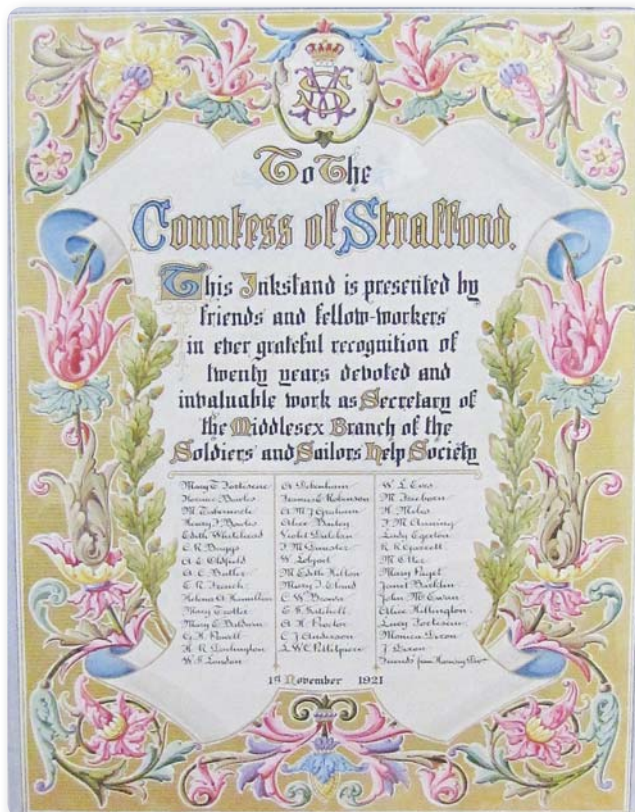 To The
Countess of Strafford.
This Inkstand is presented by
friends and fellow-workers
in ever grateful recognition of
twenty years devoted and
invaluable work as Secretary of
the Middlesex Branch of the
Soldiers and Sailors Help Society
Mary T. Fortescue
Bowles
M. Tabernacle
Henry F. Bowles
Edith Whitehead
A. E. Oldfield
A. C. Butler
E. R. French
Helena A. Hamilton
Mary Trotter
Mary E. Baldwin
G. H. Powell
H. R. Darlington
W. F. London
A. Debenham
Frances E. Robinson
A. M. J. Graham
Alice Bailey
Violet
W.
M. Edith Hilton
Mary I.
C. W. Brown
E. S. Satchell
A. H. Proctor
C. J. Anderson
L. W. C. Petitpierre
W. L. Eves
M. Freeborn
H.
F. M. Anning
Lindy Egerton
R. R. Garrett
M.
Mary Paget
Janet
John McEwan
Alice Hillington
Lucy Fortescue
Monica Dixon
J. Dixon
Friends from
1st November 1921